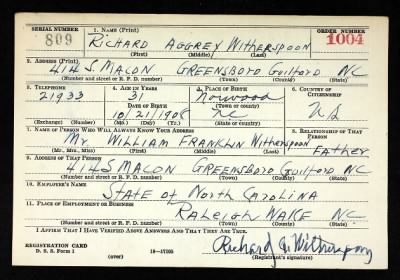 SERIAL NUMBER 1. NAME (Print) ORDER NUMBER
809 RICHARD AGGREY WITHERSPOON 1004
(First) (Middle) (Last)
2. ADDRESS (Print)
414 S. MACON GREENSBORO Guilford NC
(Number and street or R. F. D. number) (Town) (County) (State)
3. TELEPHONE 4. AGE IN YEARS 5. PLACE OF BIRTH 6. COUNTRY OF CITIZENSHIP
21933 31 Norwood
DATE OF BIRTH (Town or county)
10/21/1908 NC US
(Exchange) (Number) (Mo.) (Day) (Yr.) (State or country)
7. NAME OF PERSON WHO WILL ALWAYS KNOW YOUR ADDRESS 8. RELATIONSHIP OF THAT PERSON
Mr. WILLIAM FRANKLIN Witherspoon Father
(Mr., Mrs., Miss) (First) (Middle) (Last)
9. ADDRESS OF THAT PERSON
414 S MACON GREENSBORO Guilford NC
(Number and street or R. F. D. number) (Town) (County) (State)
10. EMPLOYER'S NAME
STATE of North CAROLINA
11. PLACE OF EMPLOYMENT OR BUSINESS
RALEIGH WAKE NC
(Number and street or R. F. D. number) (Town) (County) (State)
I AFFIRM THAT I HAVE VERIFIED ABOVE ANSWERS AND THAT THEY ARE TRUE.
Richard A. Witherspoon
REGISTRATION CARD
D. S. S. Form 1 (over) 16—17105 (Registrant's signature)